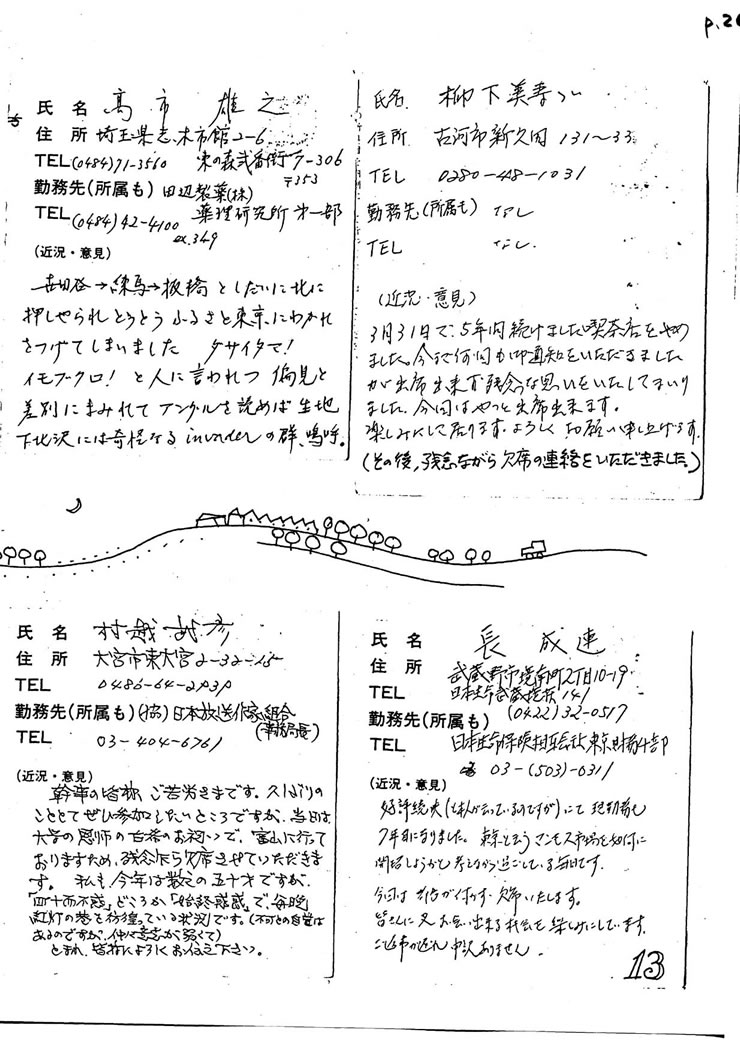 p.26
氏名 高市 雄之
住所 埼玉県志木市館2-6
TEL(0484)71-3560 東の森弐番街7-306
〒353
勤務先(所属も) 田辺製薬(株)
TEL(0484)42-4100 薬理研究所 第一部
ex.349
(近況・意見)
世田谷→練馬→板橋としだいに北に
押しやられとうとうふるさと東京にわかれ
をつげてしまいました ダサイタマ!
イモブクロ!と人に言われつ偏見と
差別にまみれてアングルを読めば生地
下北沢には奇怪なるinvaderの群、嗚呼。
氏名 柳下美寿
住所 古河市新久田131〜33
TEL 0280-48-1031
勤務先(所属も) なし
TEL なし
(近況・意見)
3月31日で、5年間続けました喫茶店をやめ
ました。今まで何回も御通知をいただきました
が出席出来ず残念な思いをいたしてまいり
ました。今回はやっと出席出来ます。
楽しみにして居ります。よろしくお願い申し上げます。
(その後,残念ながら欠席の連絡をいただきました。)
氏名 村越武彦
住所 大宮市東大宮2-32-15
TEL 0486-64-2939
勤務先(所属も)(協)日本放送作家組合
(事務局長)
TEL 03-404-6761
(近況・意見)
幹事の皆様、ご苦労さまです。久しぶりの
こととてぜひ参加したいところですが、当日は
大学の恩師の古希のお祝いで、富山に行って
おりますため、残念ながら欠席させていただきま
す。 私も今年は数えの五十才ですが、
「四十而不惑」どころか「始終惑惑」で、毎晩
紅灯の巷を彷徨っている状況です。(不可との自覚は
あるのですが、仲々意志が弱くて)
ともあれ、皆様によろしくお伝え下さい。
氏名 長 成連
住所 武蔵野市境南町2丁目10-19
TEL 日本生命武蔵境荘141
(0422)32-0517
勤務先(所属も)
TEL 日本生命保険相互会社東京財務部
03-(503)-0311
(近況・意見)
好評続決(本人が云っているのですが)にて独身者も
7年目になりました。東京と云うマンモス市場を如何に
開拓しようかと考えながら過ごしている毎日です。
今回は都合が付かず欠席いたします。
皆さんに又お会い出来る機会を楽しみにしています。
ご返事が遅れ申訳ありません。
13